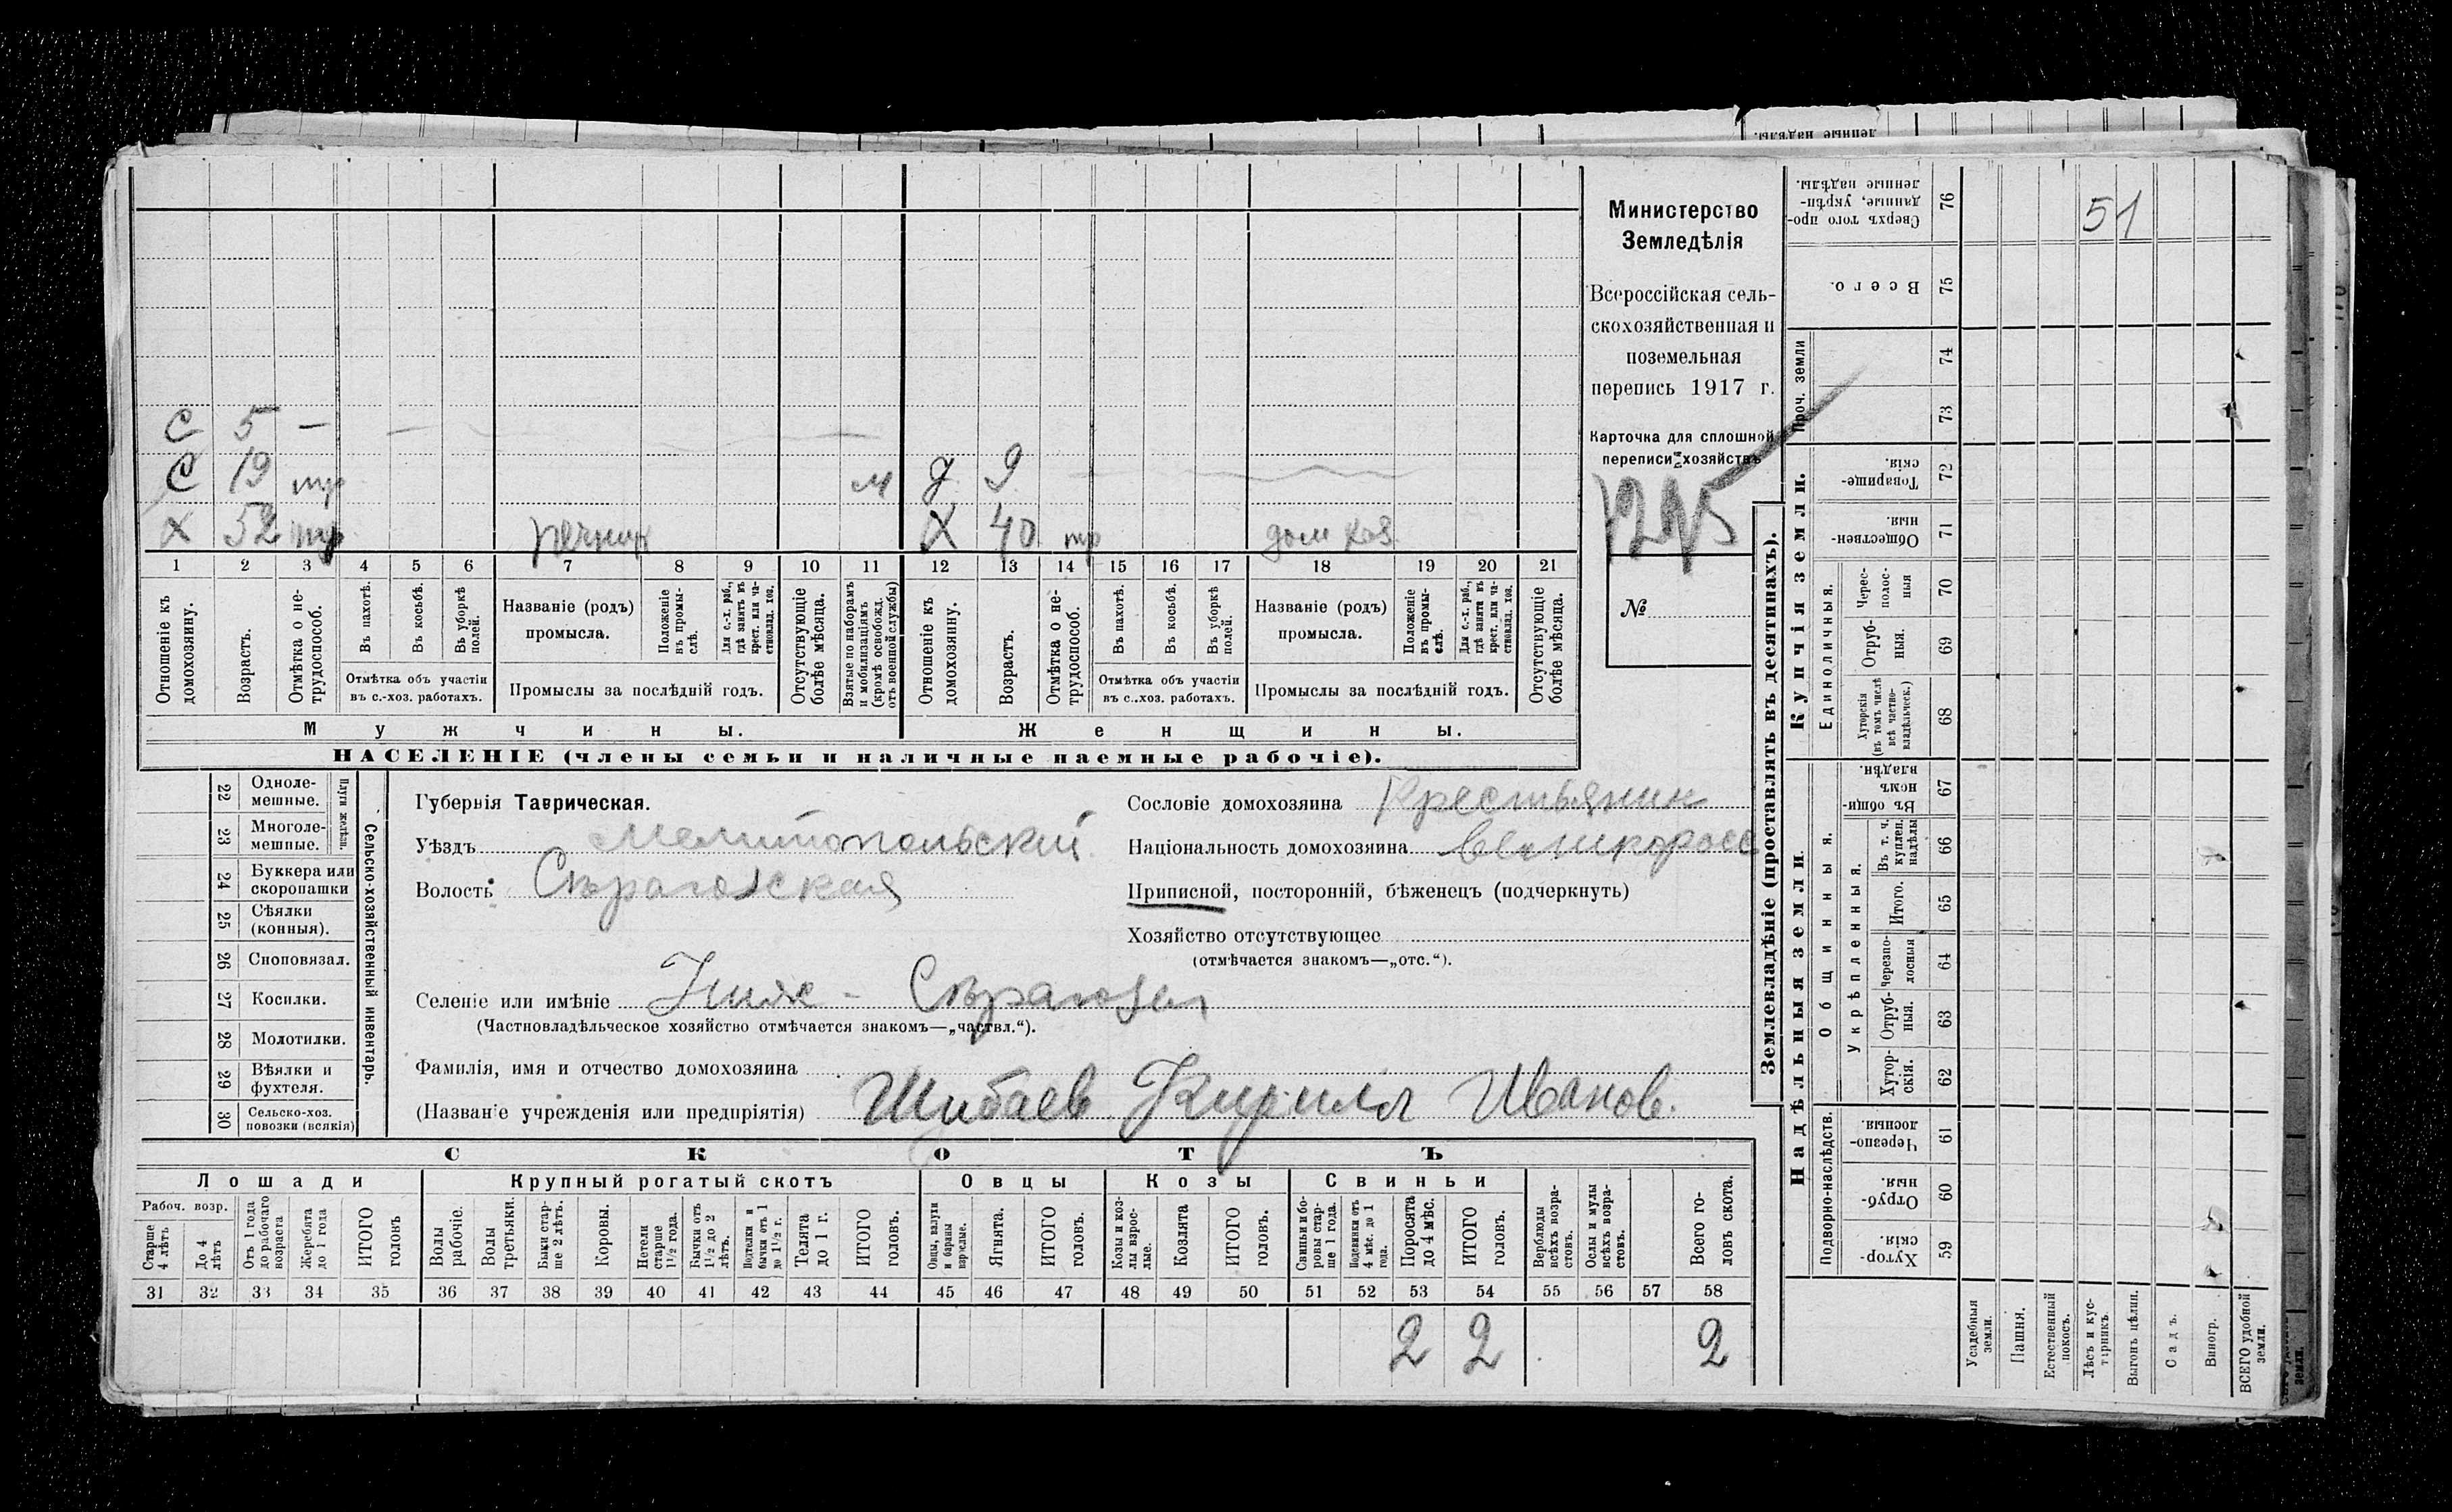 ленные надѣлы.
51
Министерство
Земледѣлія
Всероссійская сель-
скохозяйственная и
поземельная
перепись 1917 г.
Карточка для сплошной
переписи хозяйствъ
№
С 5 —
С 19 тр м Д 9
Х 52 тр печник Х 40 тр дом хоз.
1 2 3 4 5 6 7 8 9 10 11 12 13 14 15 16 17 18 19 20 21
Отношеніе къ домохозяину.
Возрастъ.
Отмѣтка о не-
трудоспособ.
Въ пахотѣ.
Въ косьбѣ.
Въ уборкѣ полей.
Отмѣтка объ участіи
въ с.-хоз. работахъ.
Названіе (родъ)
промысла.
Положеніе въ промы-
слѣ.
Для с.-х. раб., гдѣ занятъ въ крест. или ча-
стновлад. хоз.
Промыслы за послѣдній годъ.
Отсутствующіе болѣе мѣсяца.
Взятые по наборамъ и мобилизаціямъ (кромѣ освобожд. отъ военной службы)
Отношеніе къ домохозяину.
Возрастъ.
Отмѣтка о не-
трудоспособ.
Въ пахотѣ.
Въ косьбѣ.
Въ уборкѣ полей.
Отмѣтка объ участіи
въ с..хоз. работахъ.
Названіе (родъ)
промысла.
Положеніе въ промы-
слѣ.
Для с.-х. раб., гдѣ занята въ крест. или ча-
стновлад. хоз.
Промыслы за послѣдній годъ.
Отсутствующіе болѣе мѣсяца.
Мужчины. Женщины.
НАСЕЛЕНІЕ (члены семьи и наличные наемные рабочіе).
Сельско-хозяйственный инвентарь.
Плуги желѣзн.
22 Одноле-
мешные.
23 Многоле-
мешные.
24 Буккера или
скоропашки
25 Сѣялки
(конныя).
26 Сноповязал.
27 Косилки.
28 Молотилки.
29 Вѣялки и
фухтеля.
30 Сельско-хоз.
повозки (всякія)
Губернія Таврическая.
Уѣздъ Мелитопольский
Волость Сѣрагозская
Сословіе домохозяина Крестьянин
Національность домохозяина великоросс
Приписной, посторонній, бѣженецъ (подчеркнуть)
Хозяйство отсутствующее
(отмѣчается знакомъ—„отс.“).
Селеніе или имѣніе Ниж - Сѣрагозы
(Частновладѣльческое хозяйство отмѣчается знакомъ—„частвл.“).
Фамилія, имя и отчество домохозяина
(Названіе учрежденія или предпріятія) Шибаев Кирилл Иванов.
СКОТЪ
Лошади Крупный рогатый скотъ Овцы Козы Свиньи
Рабоч. возр.
Старше 4 лѣтъ
До 4 лѣтъ
Отъ 1 года до рабочаго возраста
Жеребята до 1 года
ИТОГО головъ
Волы рабочіе.
Волы третьяки.
Быки стар-
ше 2 лѣтъ.
Коровы.
Нетели старше 1½ года.
Бычки отъ 1½ до 2 лѣтъ.
Подтелки и бычки отъ 1 до 1½ г.
Телята до 1 г.
ИТОГО головъ.
Овцы, валухи и бараны взрослые.
Ягнята.
ИТОГО головъ.
Козы и коз-
лы взрос-
лые.
Козлята
ИТОГО головъ.
Свиньи и бо-
ровы стар-
ше 1 года.
Подсвинки отъ 4 мѣс. до 1 года.
Поросята до 4 мѣс.
ИТОГО головъ.
Верблюды всѣхъ возра-
стовъ.
Ослы и мулы всѣхъ возра-
стовъ.
Всего го-
ловъ скота.
31 32 33 34 35 36 37 38 39 40 41 42 43 44 45 46 47 48 49 50 51 52 53 54 55 56 57 58
2 2 2
Землевладѣніе (проставлять въ десятинахъ).
Купчія земли.
Надѣльныя земли
Сверхъ того про-
данные, укрѣп-
ленные надѣлы. 76
Всего. 75
Проч. земли 74
73
Товарище-
скія. 72
Обществен-
ныя. 71
Единоличныя.
Черес-
полос-
ныя 70
Отруб-
ныя. 69
Хуторскія (въ томъ числѣ всѣ частно-
владѣльческ.) 68
Общинныя.
Въ общи-
номъ владѣн. 67
Укрѣпленныя.
Въ т. ч. куплен. надѣлы 66
Итого. 65
Черезпо-
лосныя 64
Отруб-
ныя. 63
Хутор-
скія. 62
Подворно-наслѣдств.
Черезпо-
лосныя. 61
Отруб-
ныя. 60
Хутор-
скія. 59
Усадебныя земли.
Пашня.
Естественный покосъ.
Лѣсъ и кус-
тарникъ.
Выгонъ цѣлин.
Садъ.
Виногр.
ВСЕГО удобной земли.